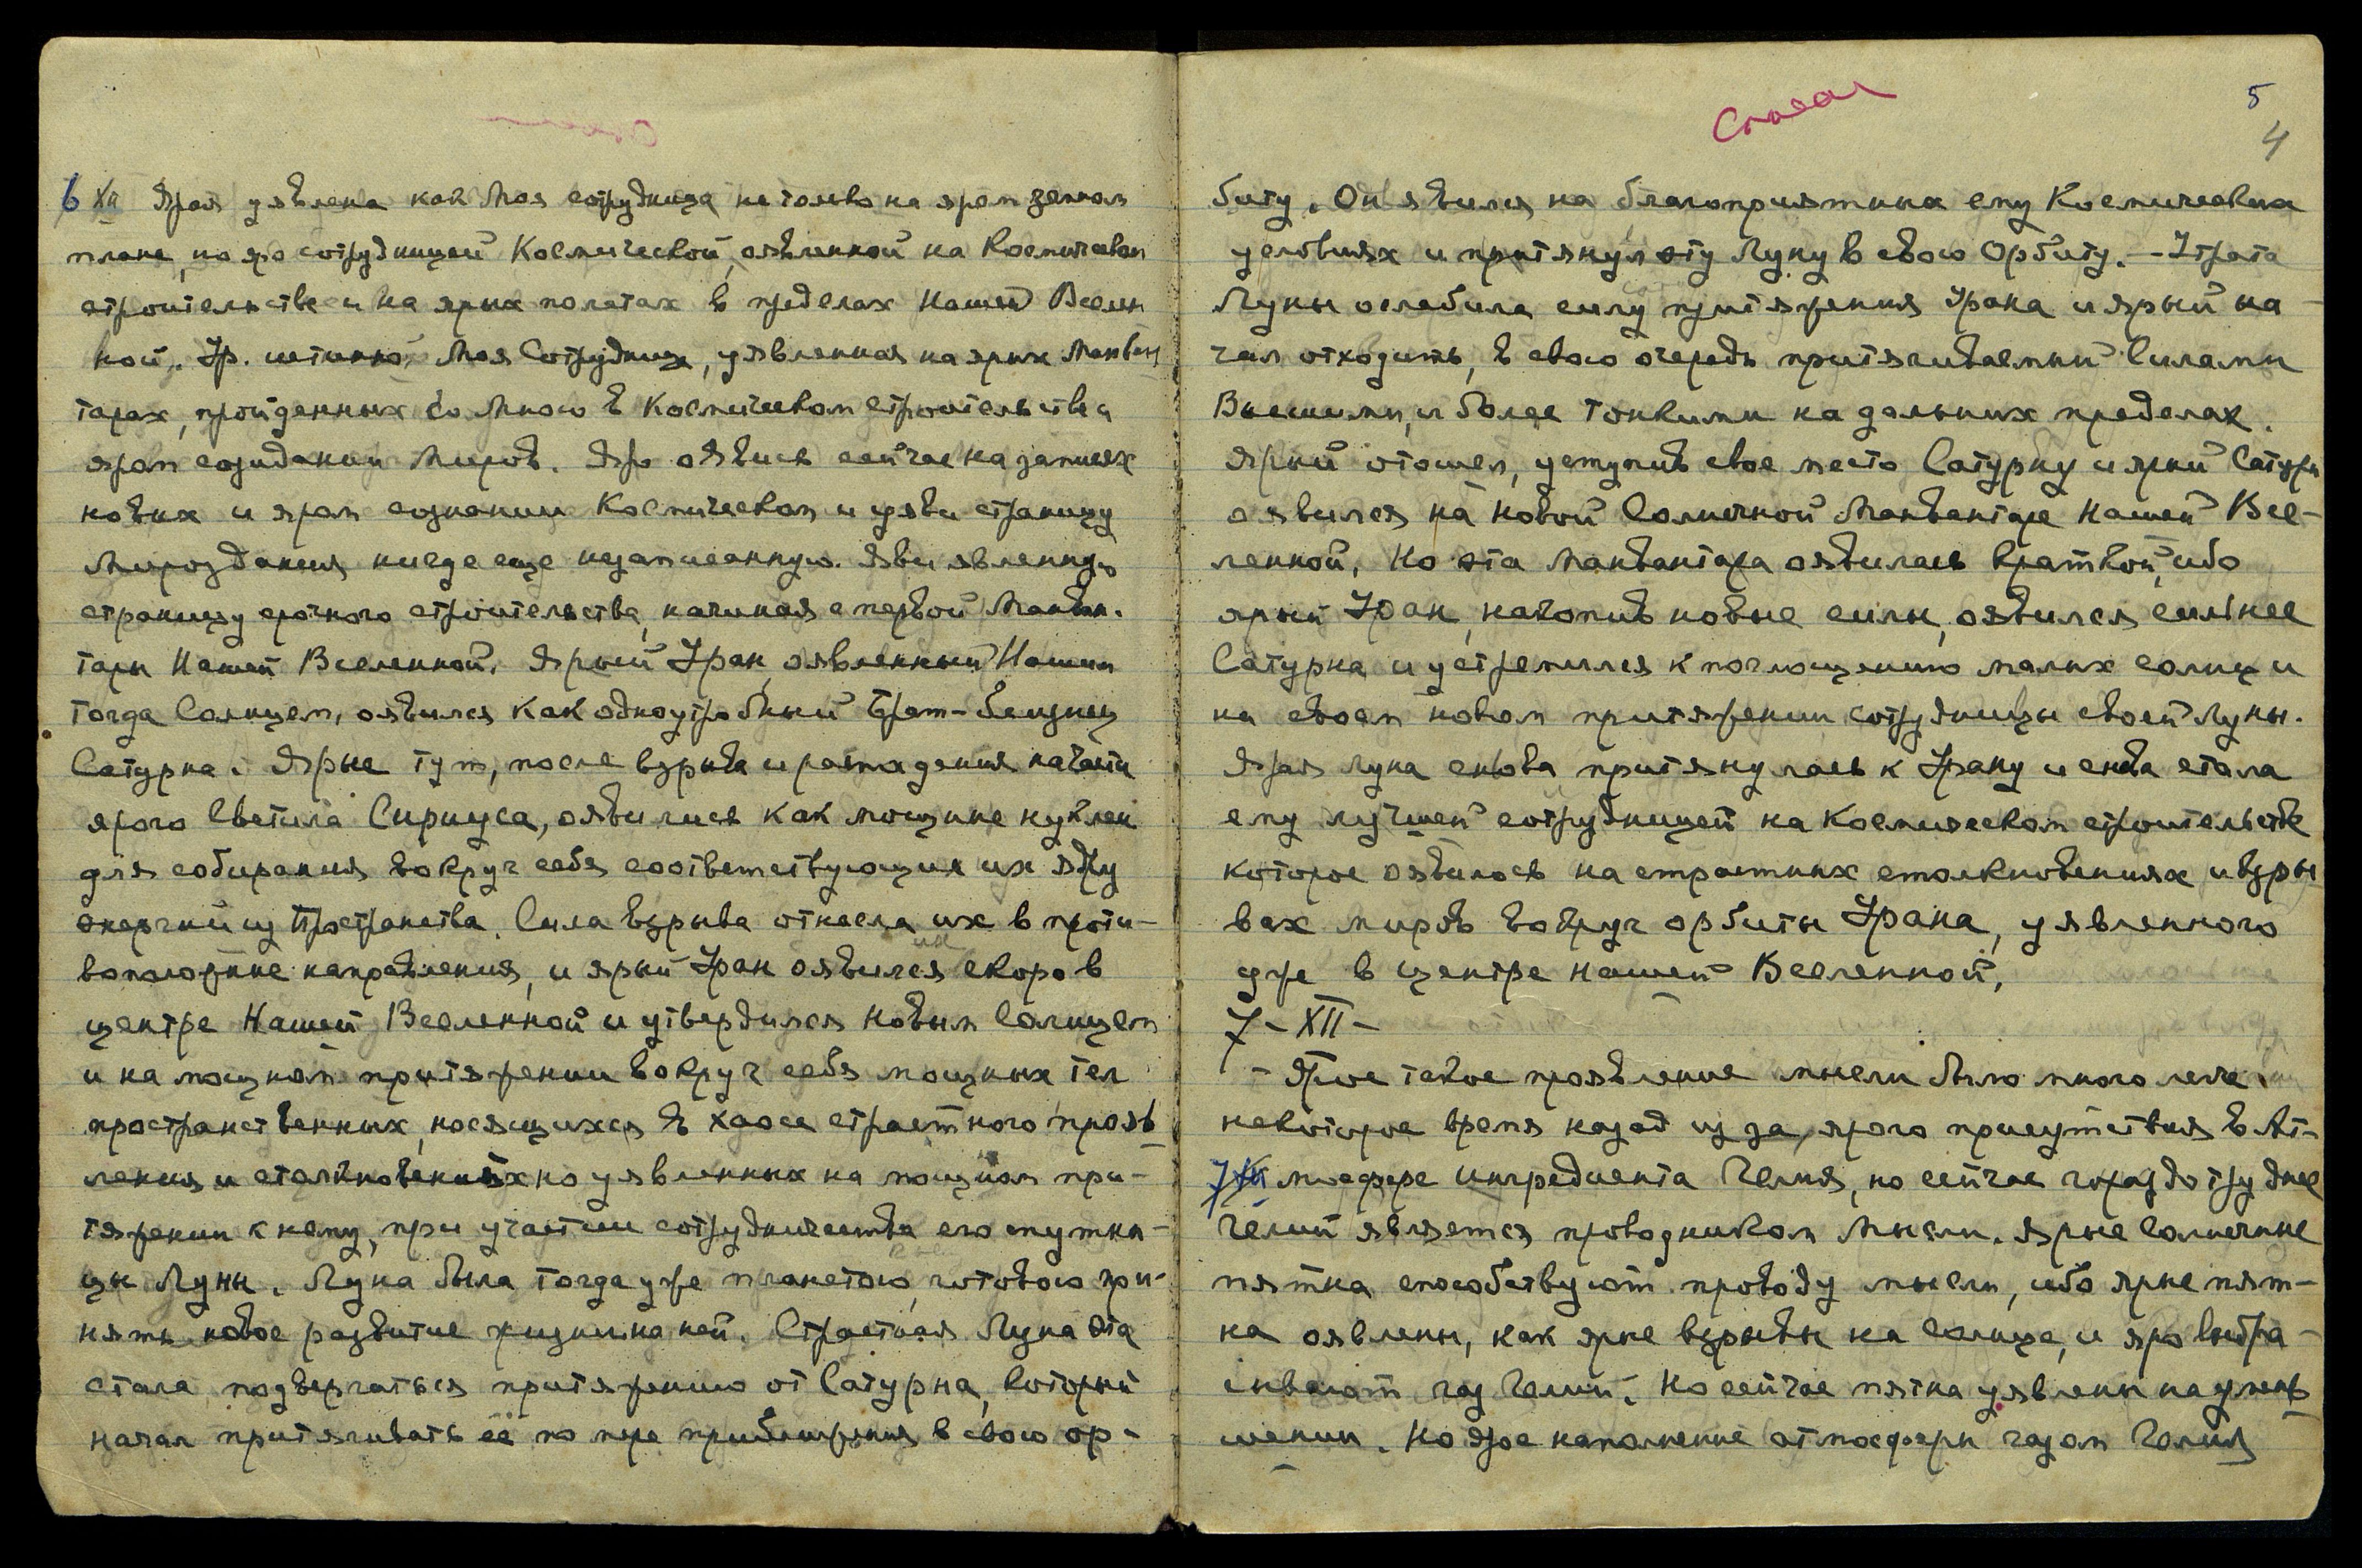 6 XII Ярая уявлена как Моя сотрудница не только на яром земном
плане, но яро сотрудницей Космической, оявленной на Космическом
строительстве и на ярых полетах в пределах Нашей Вселен
ной. Ур. истинно Моя Сотрудница, уявленная на ярых Манван
тарах, пройденных со Мною в Космическом строительстве и
яром созидании Миров. Яро оявись сейчас на записях
новых и яром сознании Космическом и уяви страницу
Мироздания нигде еще незаписанную. Яви явленную
страницу срочного строительства, начиная с первой Манван-
тары Нашей Вселенной. Ярый Уран, оявленный Нашим
тогда Солнцем, оявился как одноутробный брат-близнец
Сатурна. Ярые тут, после взрыва и распадения на части
ярого Светила Сириуса, оявились как мощные нуклеи
для собирания вокруг себя соответствующих их яду
энергий из Пространства. Сила взрыва отнесла их в проти-
воположные направления, и ярый Уран оявился скоро в
центре Нашей Вселенной и утвердился новым Солнцем
и на мощном притяжении вокруг себя мощных тел
пространственных, носящихся в хаосе страстного прояв
ления и столкновениях но уявленных на мощном при-
тяжении к нему, при участии сотрудничества его спутни-
цы Луны. Луна была тогда уже планетою, готовою при-
нять новое развитие жизни на ней. Страстная Луна эта
стала подвергаться притяжению от Сатурна, который
начал притягивать её по мере приближения в свою ор-
Списан
5
4
биту. Он явился на благоприятных ему Космических
условиях и притянул эту Луну в свою Орбиту. - Утрата
Луны ослабила силу притяжения Урана и ярый на-
чал отходить, в свою очередь притягиваемый Силами
Высшими, и более тонкими на дальних пределах.
Ярый отошел, уступив свое место Сатурну и ярый Сатурн
оявился на новой Солнечной Манвантаре Нашей Все-
ленной. Но эта Манвантара оявилась краткой, ибо
ярый Уран, накопив новые силы, оявился сильнее
Сатурна и устремился к поглощению малых солнц и
на своем новом притяжении сотрудницы своей Луны.
Ярая Луна снова притянулась к Урану и снова стала
ему лучшей сотрудницей на Космическом строительстве
которое оявилось на страстных столкновениях и взры
вах миров вокруг орбиты Урана, уявленного
уже в центре Нашей Вселенной.
7-XII-
- Ярое такое проявление мысли было много легче
некоторое время назад из за, ярого присутствия в Ат-
7 XII мосфере ингредиента Гелия, но сейчас гораздо труднее
Гелий является проводником Мысли. Ярые Солнечные
пятна способствуют проводу мысли, ибо ярые пят-
на оявлены, как ярые взрывы на Солнце, и яро выбра-
сывают газ Гелий. Но сейчас пятна уявлены на умень
шении. Но ярое наполнение атмосферы газом Гелия